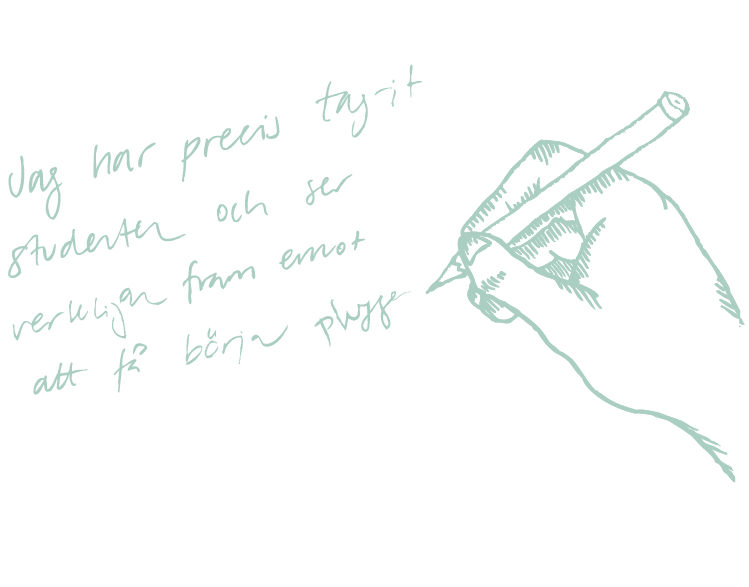 Jag har precis tagit
studenten och ser
verkligen fram emot
att få börja plugga